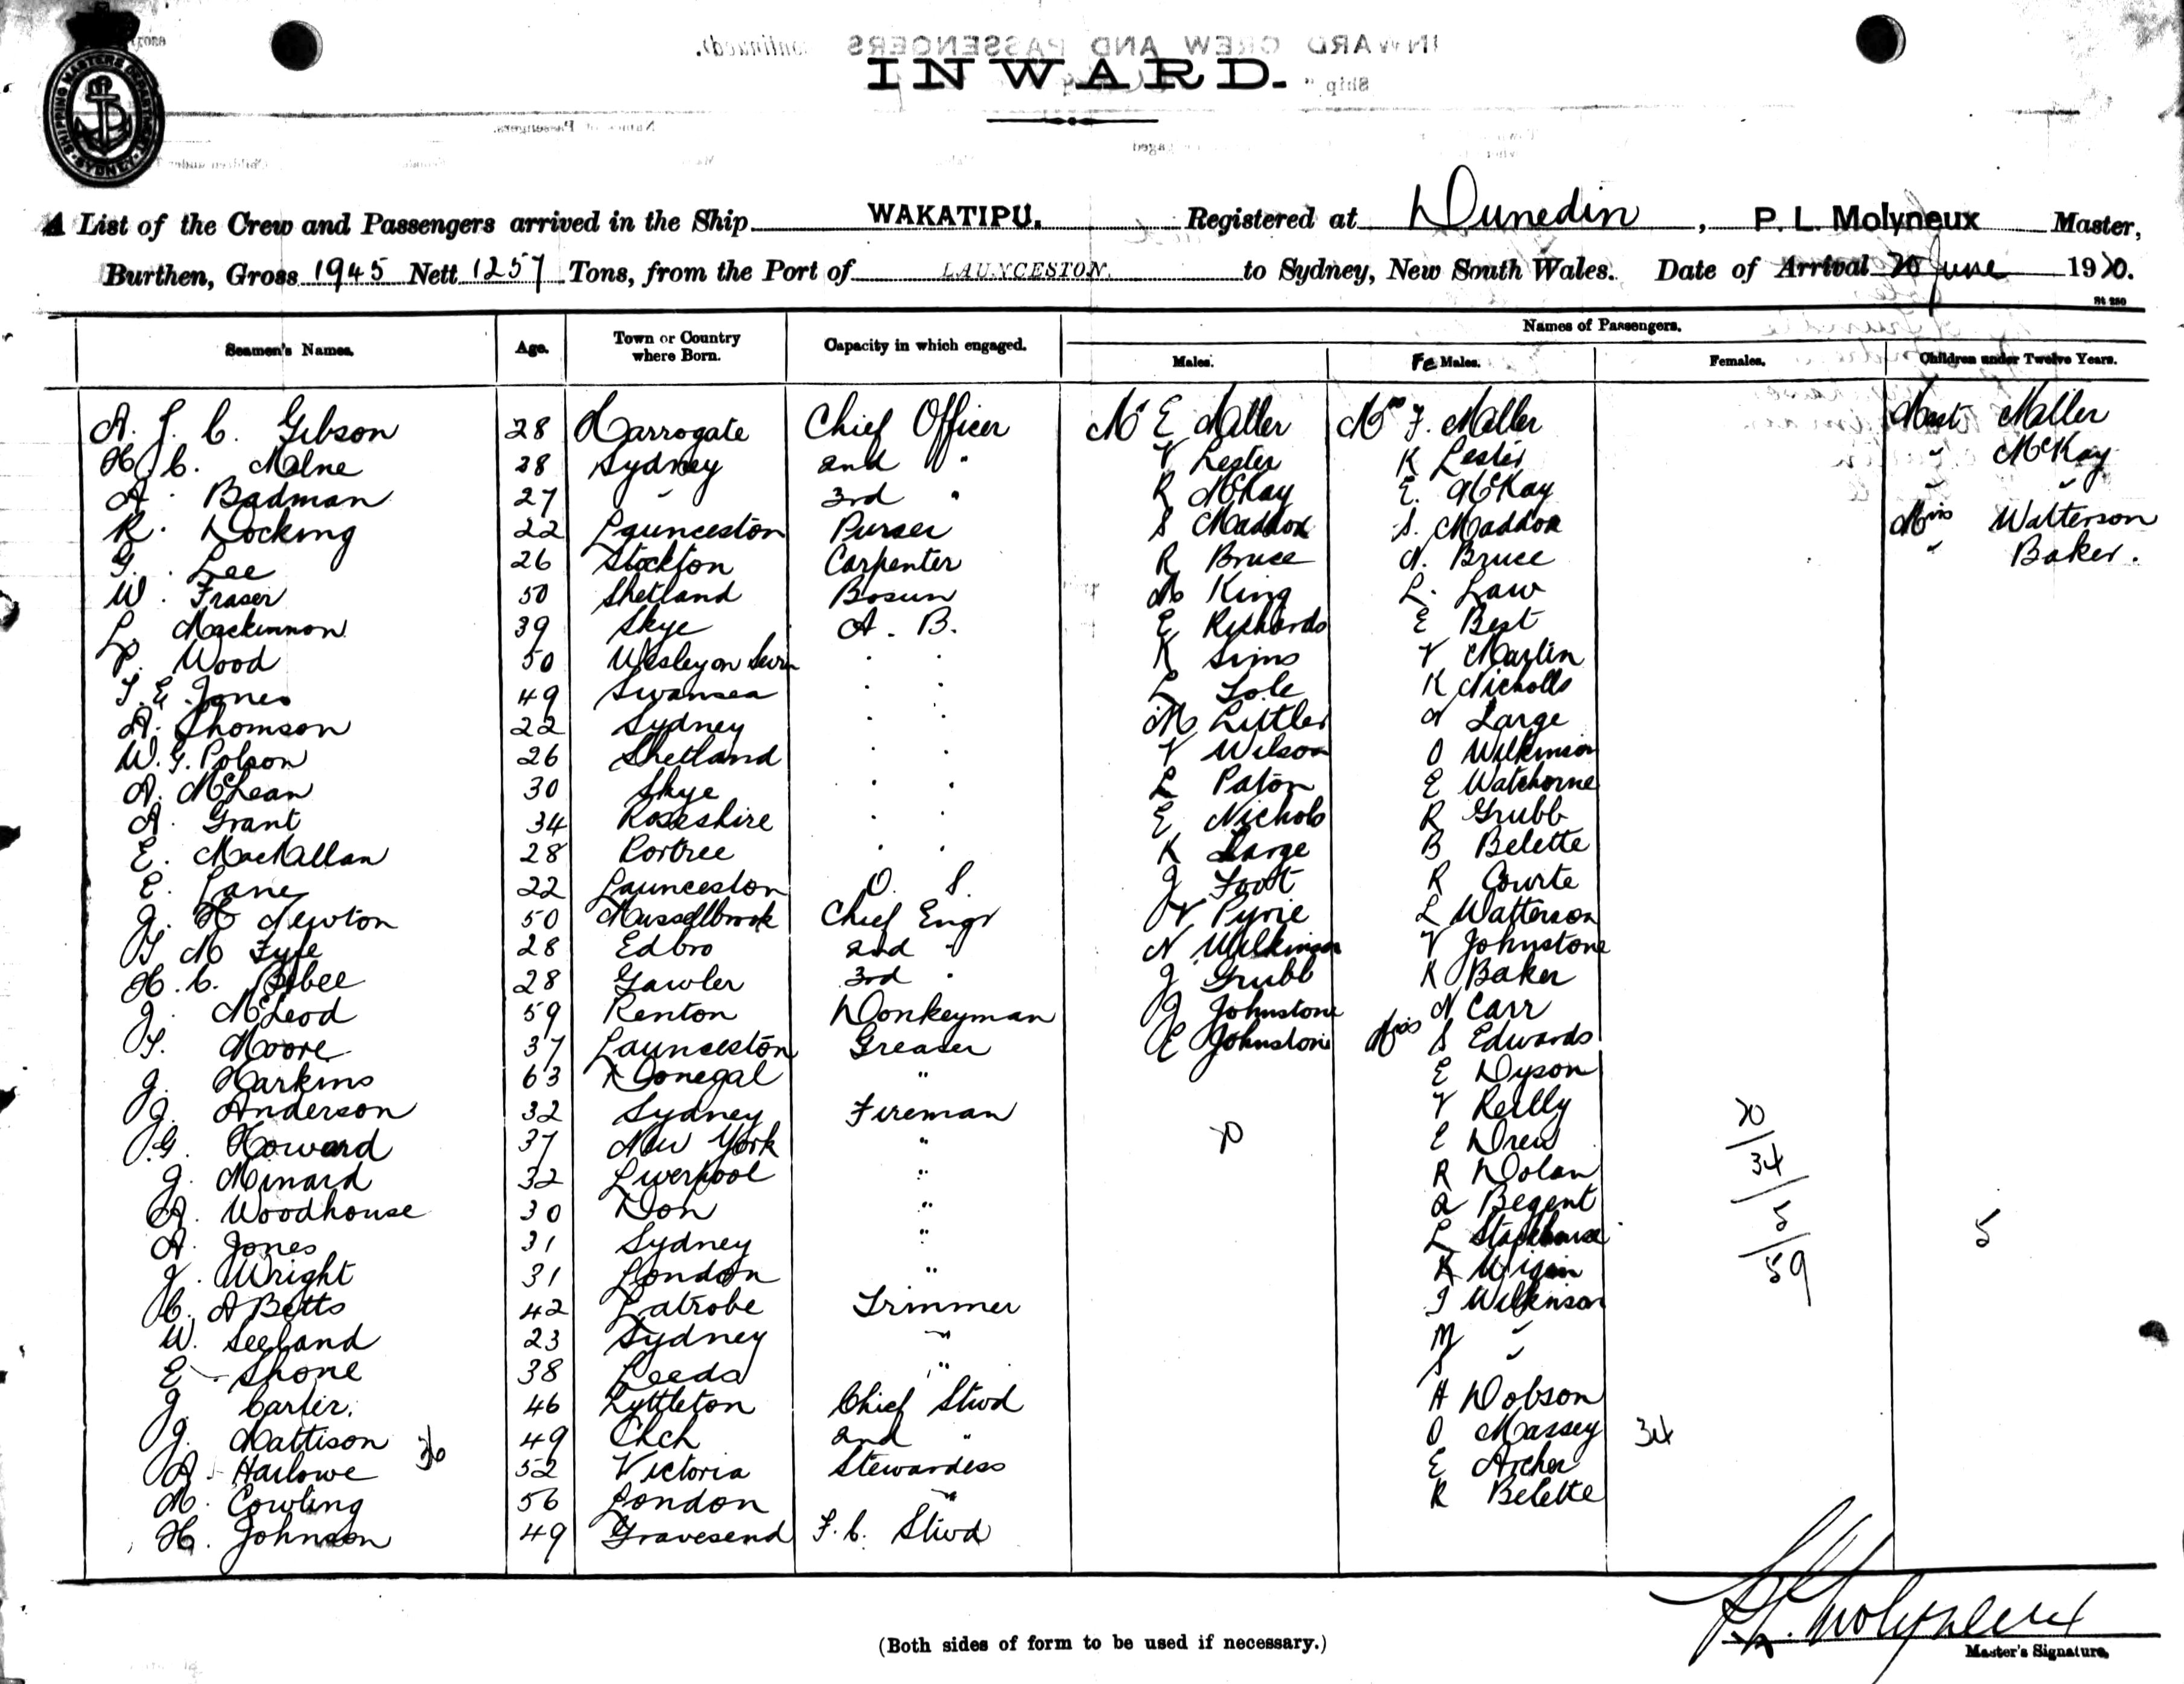 SHIPPING MASTERS DEPARTMENT SYDNEY
INWARD.
A List of the Crew and Passengers arrived in the Ship WAKATIPU. Registered at Dunedin, P. L. Molyneux Master,
Burthen, Gross 1945 Nett 1257 Tons, from the Port of LAUNCESTON. to Sydney, New South Wales. Date of Arrival 20 June 1920.
St 250
Names of Passengers.
Seamen's Names. Age. Town or Country where Born. Capacity in which engaged. Males. FeMales. Females. Children under Twelve Years.
A. J. C. Gibson 28 Harrogate Chief Officer Mr E Miller Mrs F. Miller Mast Miller
H. C. Milne 28 Sydney 2nd " V Lester K Lester " McKay
A. Badman 27 " 3rd " R McKay E. McKay " "
R. Docking 22 Launceston Purser S Maddox S. Maddox Miss Watterson
G. Lee 26 Stockton Carpenter R Bruce A. Bruce " Baker.
W. Fraser 50 Shetland Bosun A King L. Law
L. Mackinnon 39 Skye A. B. E Richards E Best
P. Wood 50 K Sims V Martin
T. E. Jones 49 Swansea " " L K Nicholls
A. Thomson 22 Sydney " " M Littler A Large
W. G. Polson 26 Shetland " " V Wilson O Wilkinson
A. McLean 30 Skye " " L Paton E Watchorne
A. Grant 34 Rossshire " " E Nichols R Grubb
E. MacMillan 28 Portree " " K Large B Belette
E. Lane 22 Launceston O. S. J Foot R Courte
J. H Newton 50 Chief Engr V Pyrie L Watterson
T M Fyfe 28 Edbro 2nd " N Wilkinson V Johnstone
H. C. Bebee 28 Gawler 3rd " J Grubb K Baker
J. McLeod 59 Renton Donkeyman J Johnstone N Carr
T. Moore 37 Launceston Greaser E Johnstone Miss S Edwards
J. Harkins 63 Donegal " E Dyson
J. Anderson 32 Sydney Fireman V Reilly 20
G. Howard 37 New York " 20 E Drew 34
J. Minard 32 Liverpool " R Dolan
A. Woodhouse 30 Don " A Begent 5
A. Jones 31 Sydney " L Stackhouse 5
J. Wright 31 London " K 59
C. A Betts 42 Latrobe Trimmer J Wilkinson
W. Seeland 23 Sydney " M "
E Shone 38 Leeds " S "
J Carter. 46 Lyttleton Chief Stwd H Dobson
J. Mattison 36 49 Chch 2nd " O Massey 34
A. Harlowe 52 Victoria Stewardess E Archer
M. Cowling 56 London " K Belette
H. Johnson 49 Gravesend F. C. Stwd
P. L. Molyneux
Master's Signature,
(Both sides of form to be used if necessary.)